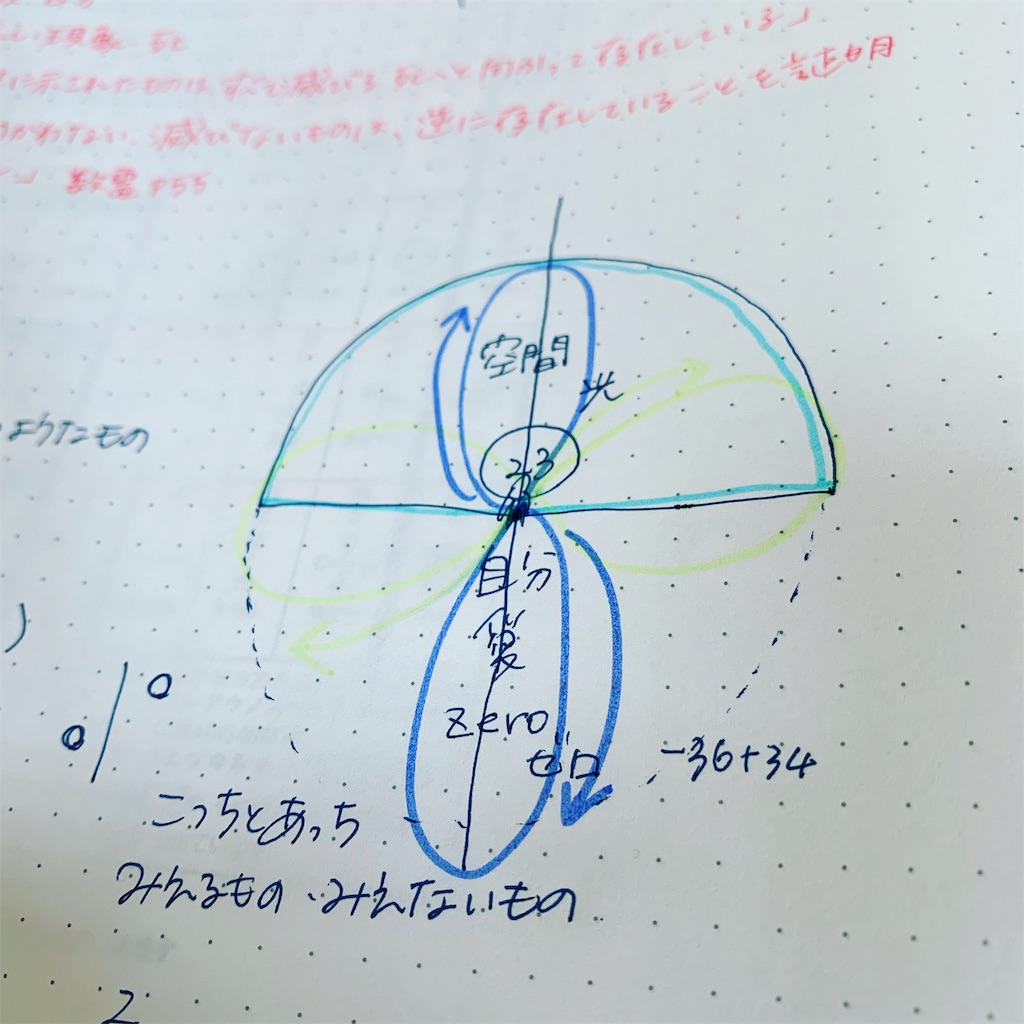 現象 死
に示されたものは、すべて滅びる 死へと向かって存在している」
向かわない、滅びないものは、逆に存在していることを証明
」 数霊 P55
空間
光
23
ようなもの
自分
愛
zero
ゼロ
-36+34
0/0
こっちとあっち
みえるもの・みえないもの
2